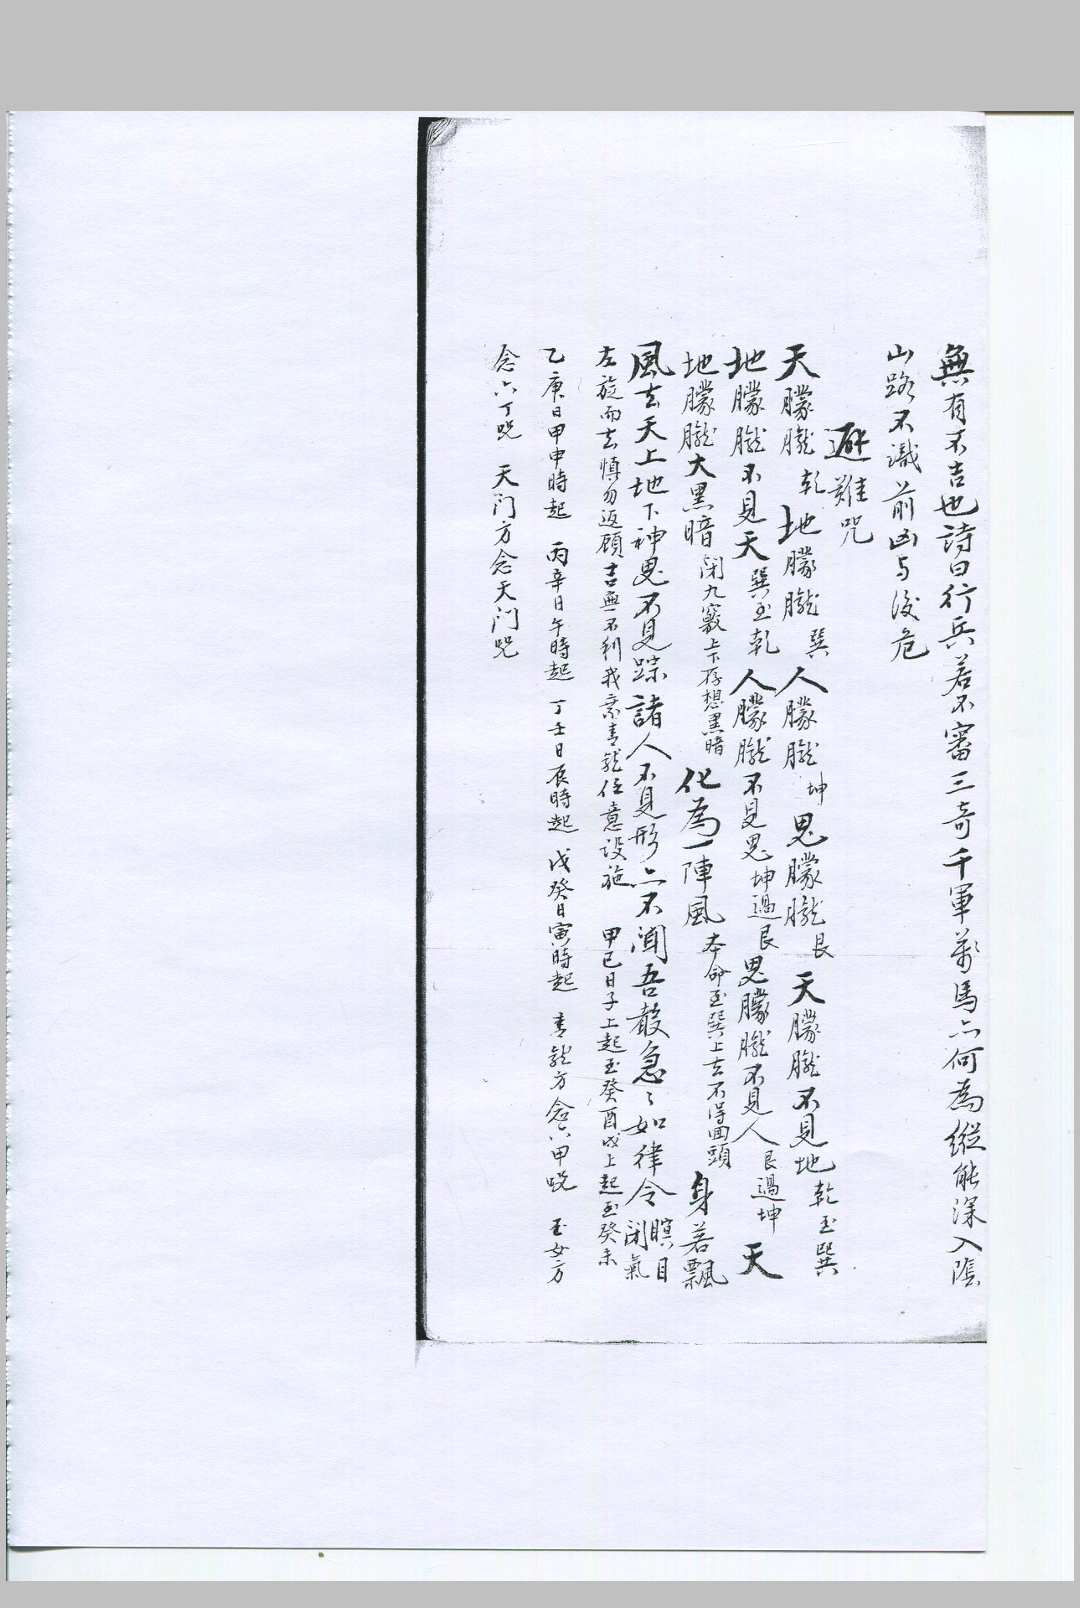 無有不吉也詩曰行兵若不審三奇千軍萬馬亦何為縱能深入陰
山路不識前凶与後危
避難咒
天朦朧乾地朦朧巽人朦朧坤鬼朦朧艮天朦朧不見地乾至巽
地朦朧不見天巽至乾人朦朧不見鬼坤過艮鬼朦朧不見人艮過坤天
地朦朧大黑暗閉九竅上下存想黑暗化為一陣風本命至巽上去不得回頭身若飄
風去天上地下神鬼不見踪諸人不見形亦不聞吾敕急々如律令瞑目閉氣
左旋而去慎勿返顧吉無不利我乘青龍任意設施 甲己日子上起至癸酉戌上起至癸未
乙庚日甲申時起 丙辛日午時起 丁壬日辰時起 戊癸日寅時起 青龍方念六甲咒 玉女方
念六丁咒 天门方念天门咒